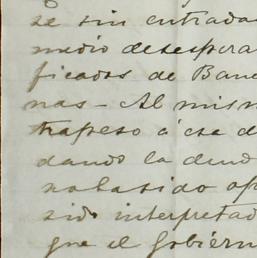 se sin entrada
medio desespera
ficados de Banc
nas - Al mism
trapeso á ese d
dando la deud
no ha sido op
sido interpretad
que el Gobiern